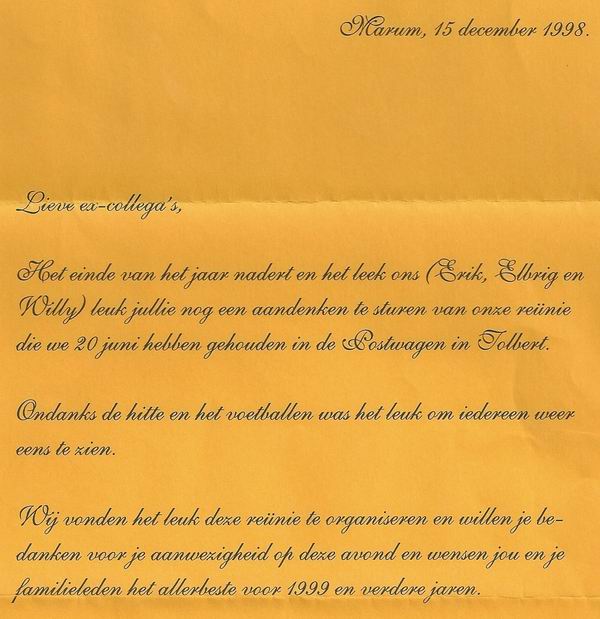 Marum, 15 december 1998.
Lieve ex-collega's,
Het einde van het jaar nadert en het leek ons (Erik, Elbrig en
Willy) leuk jullie nog een aandenken te sturen van onze reünie
die we 20 juni hebben gehouden in de Postwagen in Tolbert.
Ondanks de hitte en het voetballen was het leuk om iedereen weer
eens te zien.
Wij vonden het leuk deze reünie te organiseren en willen je be-
danken voor je aanwezigheid op deze avond en wensen jou en je
familieleden het allerbeste voor 1999 en verdere jaren.